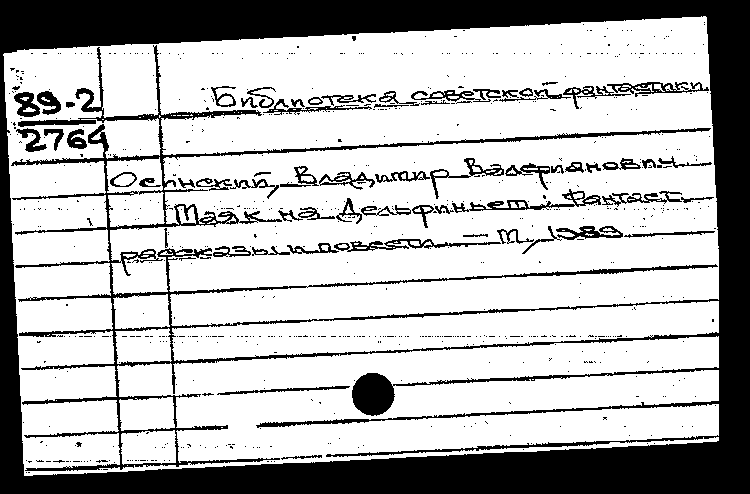 89-2
2764
Библиотека советской фантастики.
Осинский, Владимир Валерианович
Маяк на Дельфиньем: Фантаст.
рассказы и повести. — М., 1989